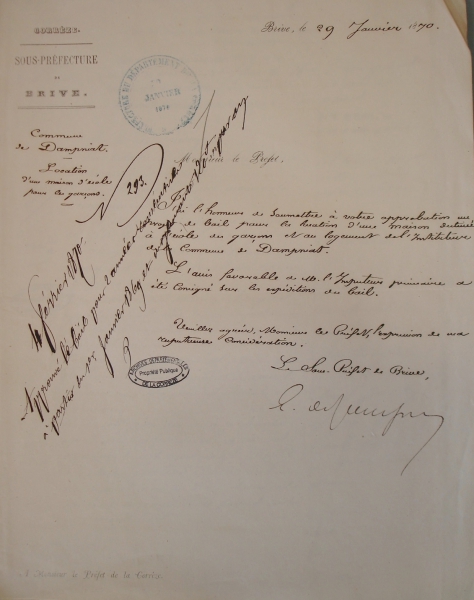 CORRÈZE.
SOUS-PRÉFECTURE
DE
BRIVE.
Brive, le 29 Janvier 1870.
JANVIER
Commune
de Dampniat.
Location
d'une maison d'école
pour les garçons.
N 293.
Monsieur le Préfet,
J'ai l'honneur de soumettre à votre approbation un
projet de bail pour la location d'une maison destinée
à l'école des garçons et au logement de l'Instituteur
de la Commune de Dampniat.
L'avis favorable de M. l'Inspecteur primaire a
été consigné sur les expéditions du bail.
Veuillez agréer, Monsieur le Préfet, l'expression de ma
respectueuse considération.
Le Sous-Préfet de Brive,
4 février 1870.
Approuvé le bail pour 2 années
à partir du 1er Janvier
ARCHIVES DÉPARTEMENTALES
Propriété Publique
DE LA CORRÈZE
A Monsieur le Préfet de la Corrèze.